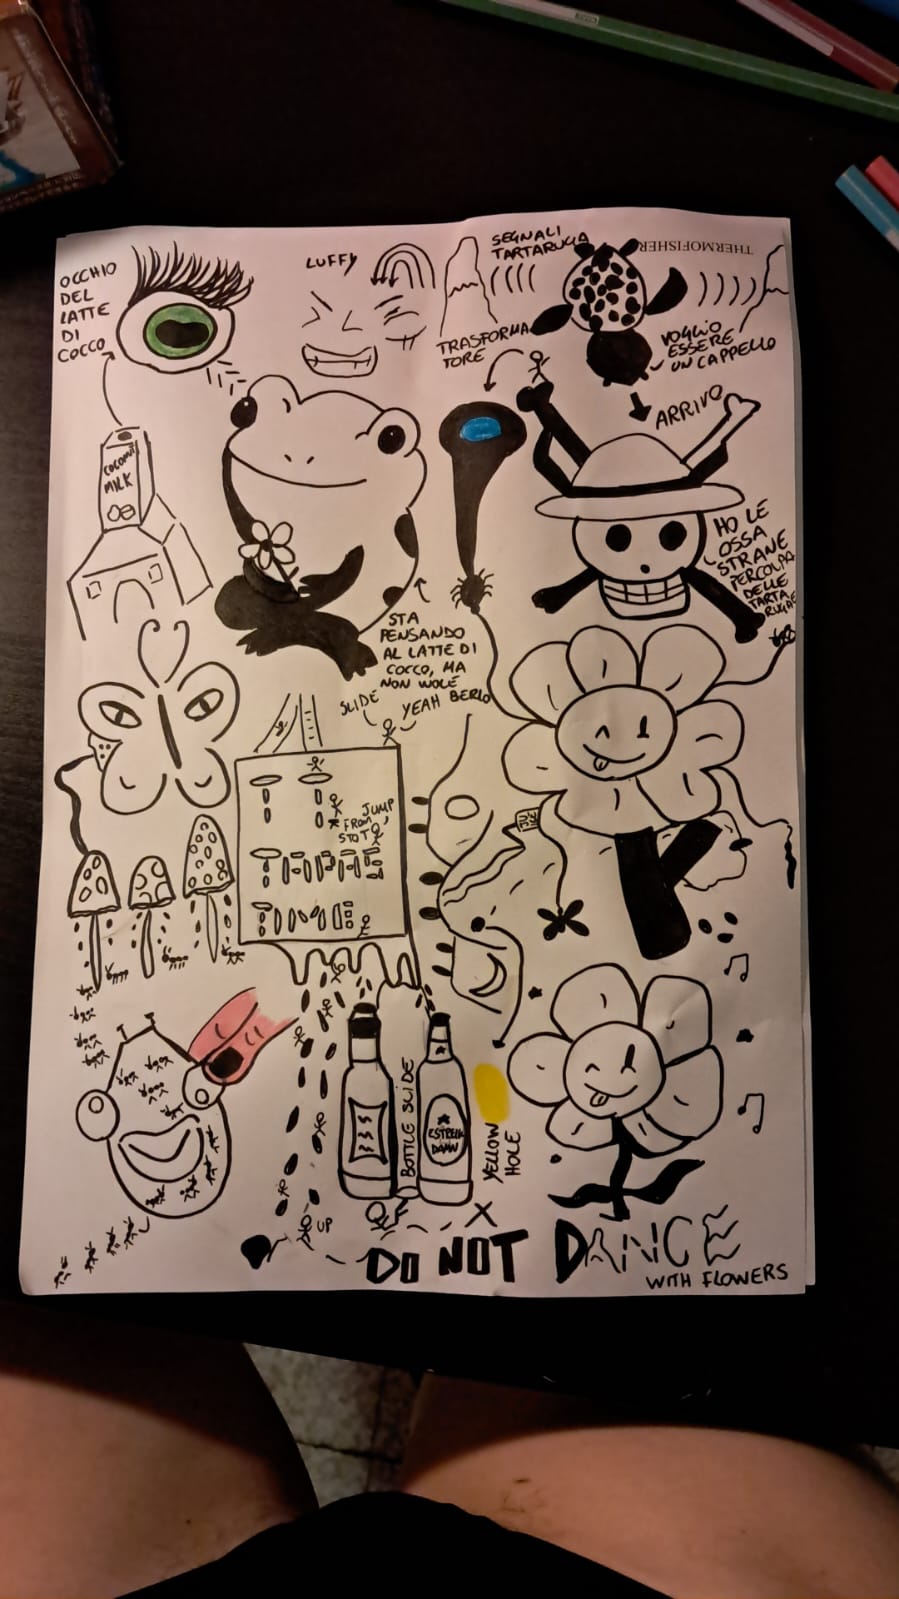 OCCHIO
DEL
LATTE
DI
COCCO
LUFFY
SEGNALI
TARTARUGA
THERMOFISHER
TRASFORMA
TORE
VOGLIO
ESSERE
UN CAPPELLO
ARRIVO
MILK
HO LE
OSSA
STRANE
PERCOLPA
DELLE
TARTA
RUGAE
STA
PENSANDO
AL LATTE DI
COCCO, MA
NON WOLE
BERLO
SLIDE
YEAH
JUMP
FROM
TIME
BOTTLE SLIDE
ESTRELLA
DAMN
YELLOW
HOLE
UP
X
DO NOT DANCE
WITH FLOWERS